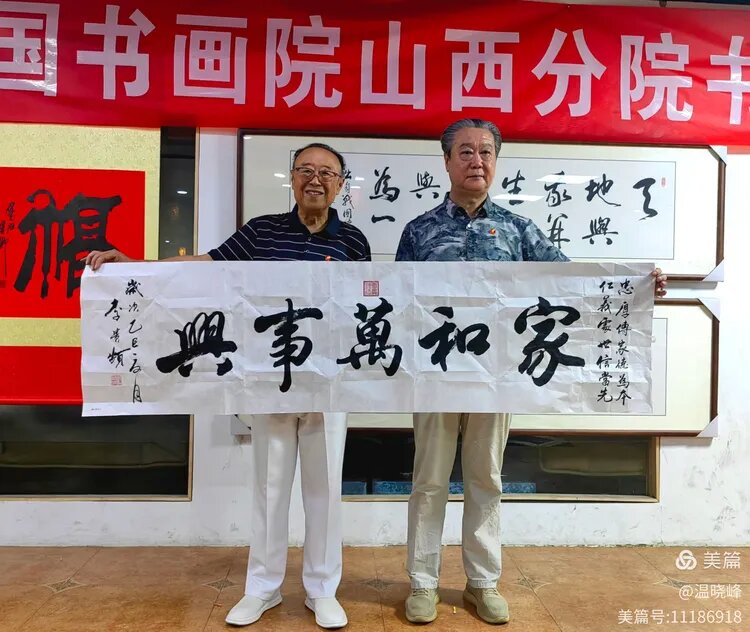 国书画院山西分院书
家和萬事興
忠厚傳家德為本
仁義處世信當先
歲次乙巳之夏月
李
天地與
我並
生
與
為一
福
美篇
@温晓峰
美篇号:11186918